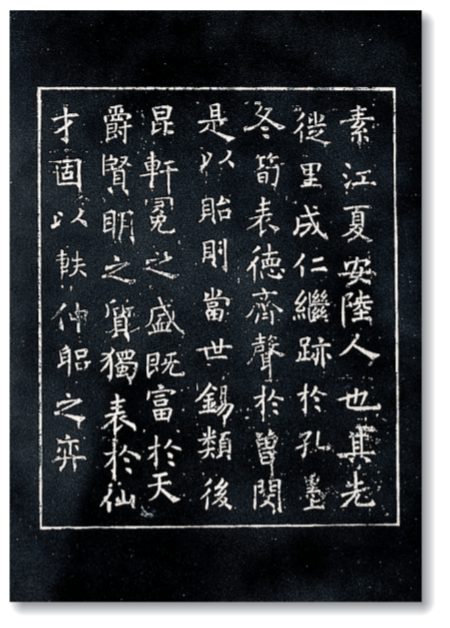 素江夏安陸人也其先
徙里成仁繼跡於孔墨
冬筍表徳齊聲於曾閔
是以貽則當世錫類後
昆軒冕之盛既富於天
爵賢明之質獨表於仙
才固以軼仲躬之弈